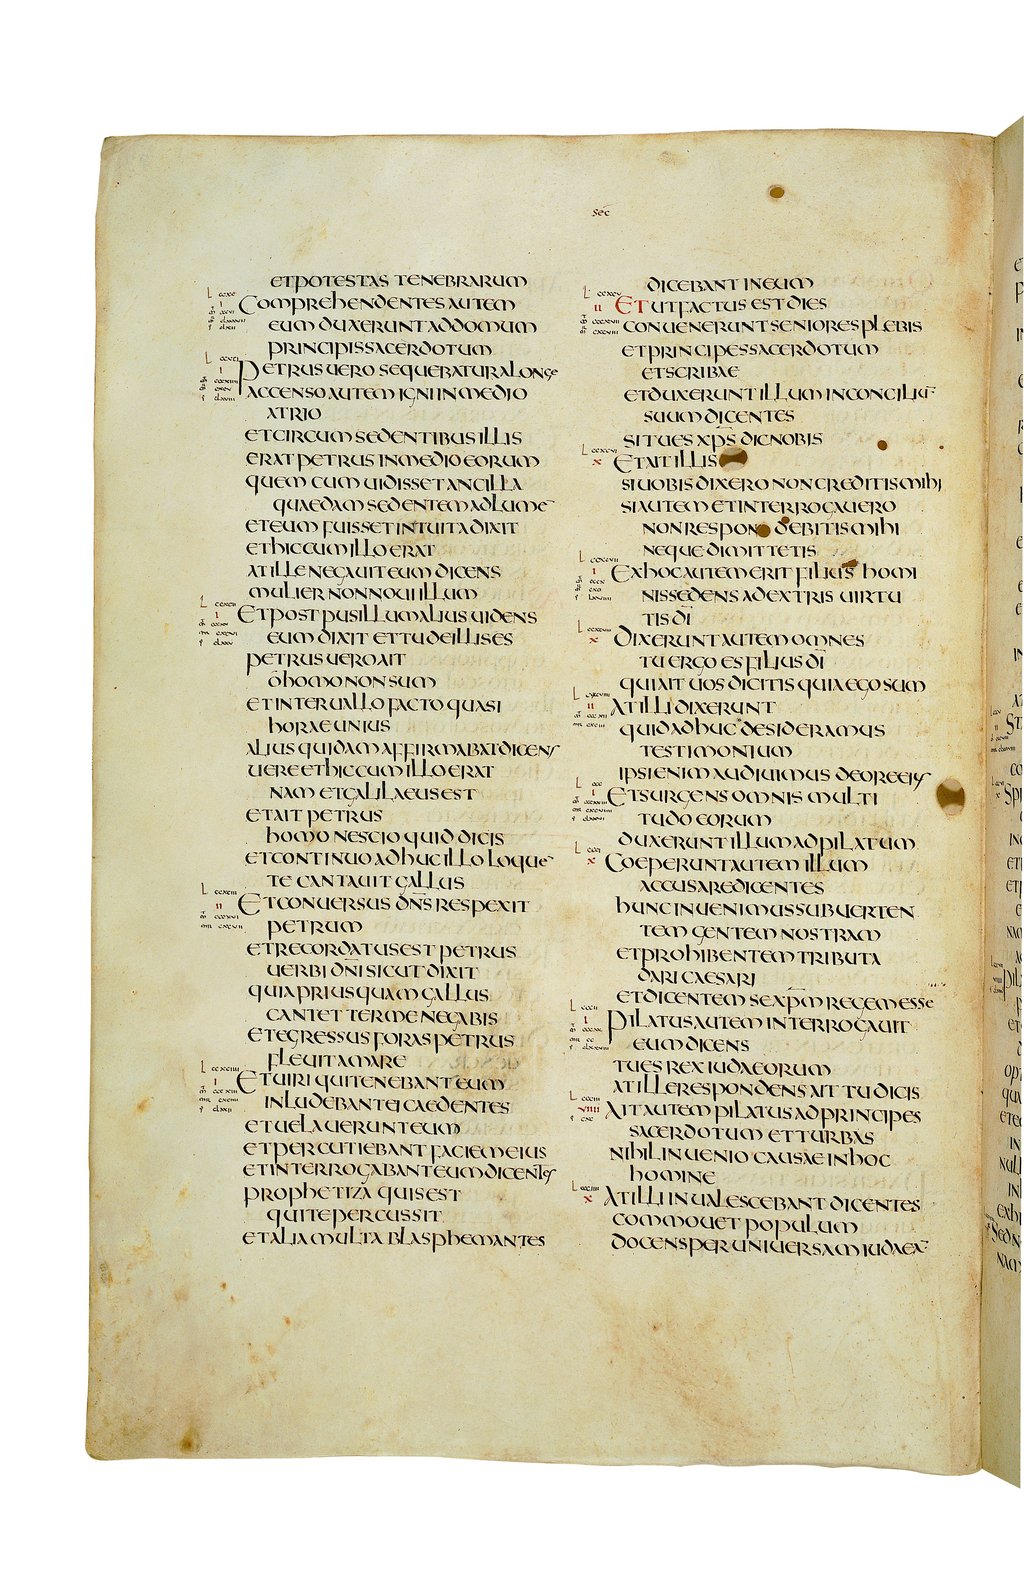 sec
ETPOTESTAS TENEBRARUM
COMPREHENDENTES AUTEM
EUM DUXERUNT AD DOMUM
PRINCIPIS SACERDOTUM
PETRUS UERO SEQUEBATUR A LONGE
ACCENSO AUTEM IGNI IN MEDIO
ATRIO
ET CIRCUM SEDENTIBUS ILLIS
ERAT PETRUS IN MEDIO EORUM
QUEM CUM UIDISSET ANCILLA
QUAEDAM SEDENTEM AD LUME¯
ET EUM FUISSET INTUITA DIXIT
ET HIC CUM ILLO ERAT
AT ILLE NEGAUIT EUM DICENS
MULIER NON NOUI ILLUM
ET POST PUSILLUM ALIUS UIDENS
EUM DIXIT ET TU DE ILLIS ES
PETRUS UERO AIT
O HOMO NON SUM
ET INTERUALLO FACTO QUASI
HORAE UNIUS
ALIUS QUIDAM AFFIRMABAT DICENS
UERE ET HIC CUM ILLO ERAT
NAM ET GALILAEUS EST
ET AIT PETRUS
HOMO NESCIO QUID DICIS
ET CONTINUO ADHUC ILLO LOQUE¯
TE CANTAUIT GALLUS
ET CONUERSUS DN̄S RESPEXIT
PETRUM
ET RECORDATUS EST PETRUS
UERBI DN̄I SICUT DIXIT
QUIA PRIUSQUAM GALLUS
CANTET TER ME NEGABIS
ET EGRESSUS FORAS PETRUS
FLEUIT AMARE
ET UIRI QUI TENEBANT EUM
INLUDEBANT EI CAEDENTES
ET UELAUERUNT EUM
ET PERCUTIEBANT FACIEM EIUS
ET INTERROGABANT EUM DICENTES
PROPHETIZA QUIS EST
QUI TE PERCUSSIT
ET ALIA MULTA BLASPHEMANTES
DICEBANT IN EUM
ET UT FACTUS EST DIES
CONUENERUNT SENIORES PLEBIS
ET PRINCIPES SACERDOTUM
ET SCRIBAE
ET DUXERUNT ILLUM IN CONCILIU¯
SUUM DICENTES
SI TU ES XP̄S DIC NOBIS
ET AIT ILLIS
SI UOBIS DIXERO NON CREDITIS MIHI
SI AUTEM ET INTERROGAUERO
NON RESPONDEBITIS MIHI
NEQUE DIMITTETIS
EX HOC AUTEM ERIT FILIUS HOMI
NIS SEDENS A DEXTRIS UIRTU
TIS DĪ
DIXERUNT AUTEM OMNES
TU ERGO ES FILIUS DĪ
QUI AIT UOS DICITIS QUIA EGO SUM
AT ILLI DIXERUNT
QUID ADHUC DESIDERAMUS
TESTIMONIUM
IPSI ENIM AUDIUIMUS DE ORE EIUS
ET SURGENS OMNIS MULTI
TUDO EORUM
DUXERUNT ILLUM AD PILATUM
COEPERUNT AUTEM ILLUM
ACCUSARE DICENTES
HUNC INUENIMUS SUBUERTEN
TEM GENTEM NOSTRAM
ET PROHIBENTEM TRIBUTA
DARI CAESARI
ET DICENTEM SE XP̄M REGEM ESSE
PILATUS AUTEM INTERROGAUIT
EUM DICENS
TU ES REX IUDAEORUM
AT ILLE RESPONDENS AIT TU DICIS
AIT AUTEM PILATUS AD PRINCIPES
SACERDOTUM ET TURBAS
NIHIL INUENIO CAUSAE IN HOC
HOMINE
AT ILLI INUALESCEBANT DICENTES
COMMOUET POPULUM
DOCENS PER UNIUERSAM IUDAEA¯